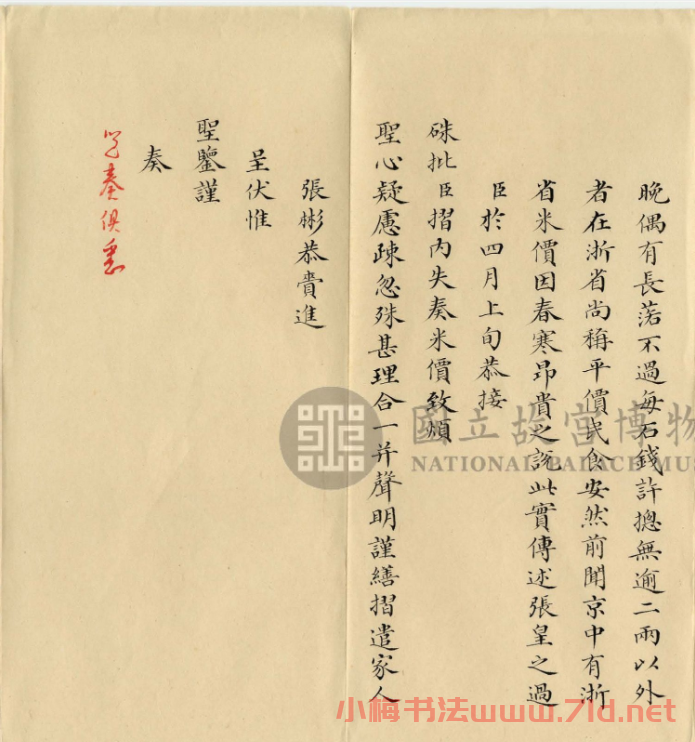 晚偶有長落不過每石錢許摠無逾二兩以外
者在浙省尚稱平價民食安然前聞京中有浙
省米價因春寒昂貴之說此實傳述張皇之過
臣於四月上旬恭接
硃批臣摺內失奏米價致煩
聖心疑慮疎忽殊甚理合一并聲明謹繕摺遣家人
張彬恭賫進
呈伏惟
聖鑒謹
奏
奏俱悉
國立故宮博物
NATIONAL PALACE MUS
小梅书法www.71d.net